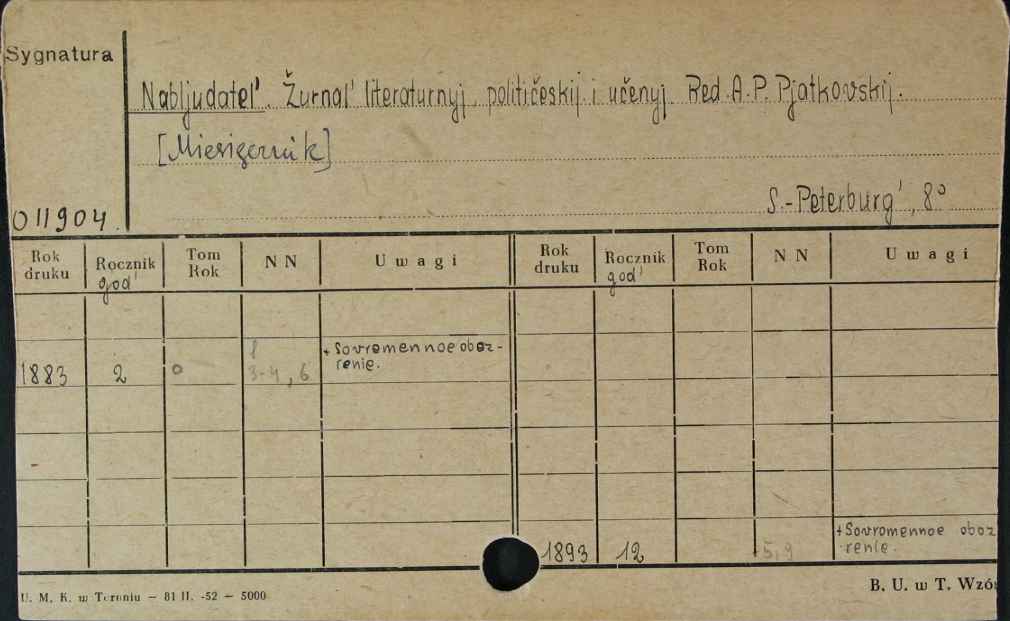 Sygnatura
Nabljudatel'. Žurnal' literaturnyj, političeskij i učenyj Red. A. P. Pjatkovskij.
[Miesięcznik]
S.-Peterburg', 8°
011904.
Rok druku Rocznik god' Tom Rok N N Uwagi Rok druku Rocznik god' Tom Rok N N Uwagi
1883 2 0 3-4, 6 + Sovremennoe oboz-
renie.
1893 12 5, 9 + Sovromennoe oboz
renie.
U. M. K. w Toruniu — 81 II. -52 — 5000
B. U. w T. Wzó